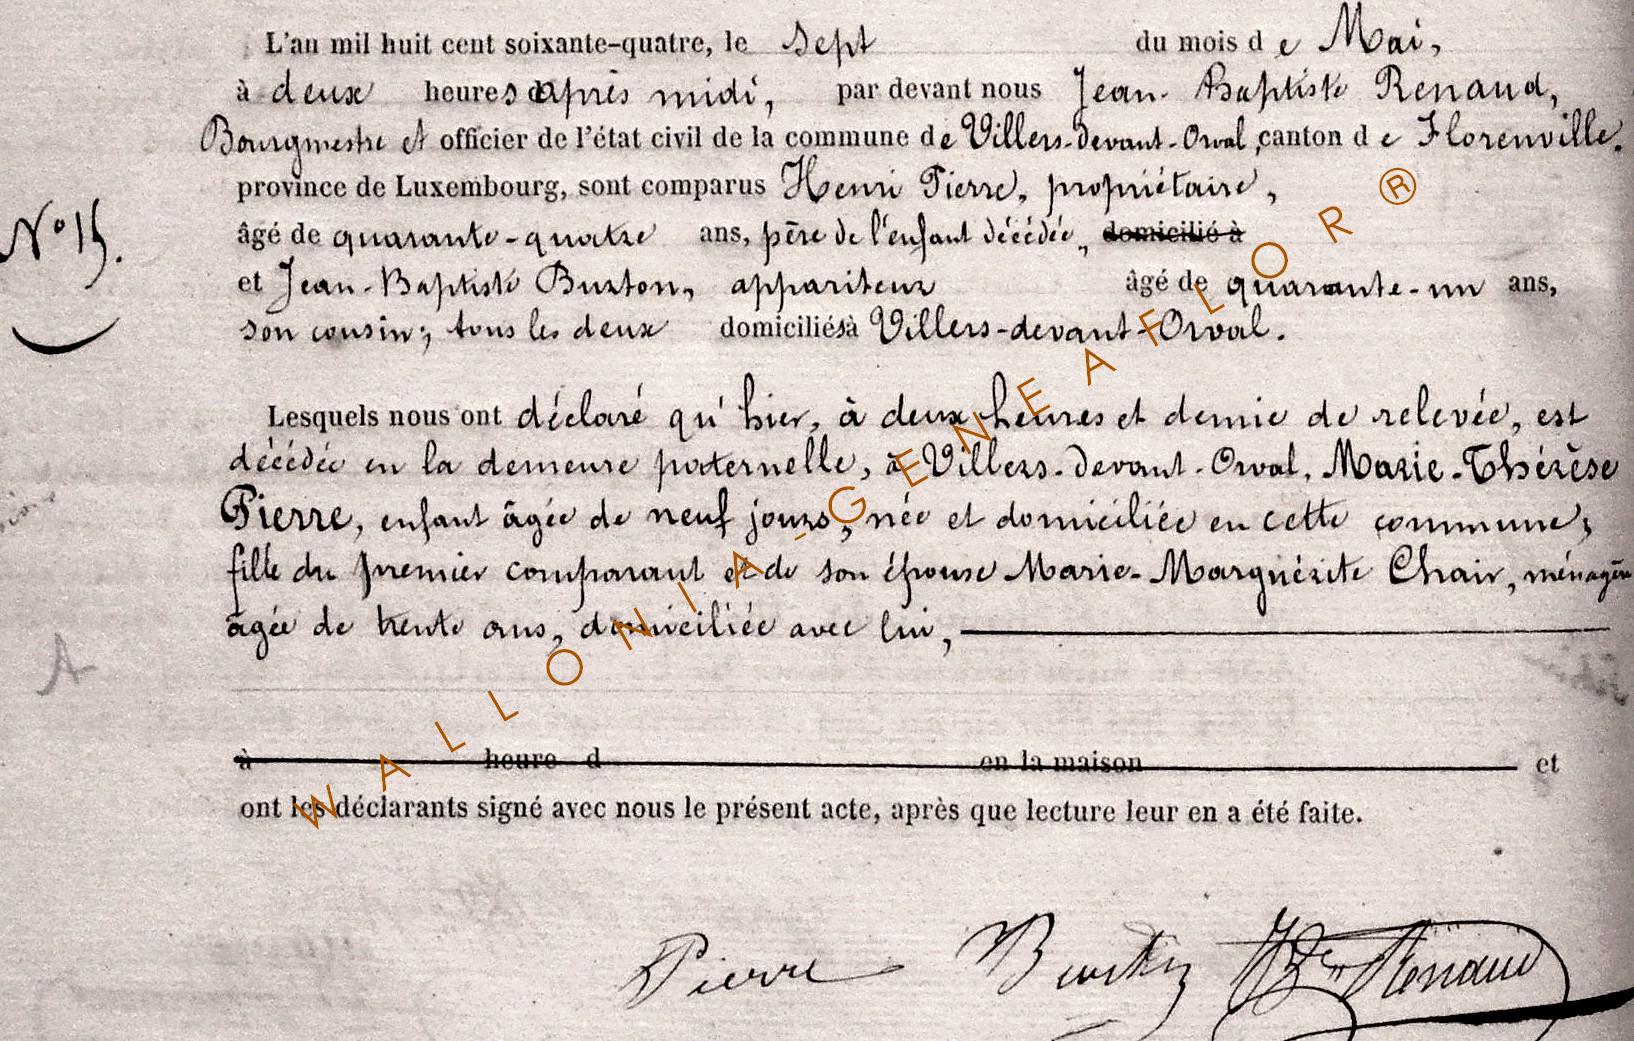 L'an mil huit cent soixante-quatre, le sept du mois de Mai,
à deux heures d'après midi, par devant nous Jean-Baptiste Renaud,
Bourgmestre et officier de l'état civil de la commune de Villers-devant-Orval, canton de Florenville,
province de Luxembourg, sont comparus Henri Pierre, propriétaire,
âgé de quarante-quatre ans, père de l'enfant décédée, domicilié à
N° 15.
et Jean-Baptiste Burton, appariteur âgé de quarante-un ans,
son cousin; tous les deux domiciliés à Villers-devant-Orval.
Lesquels nous ont déclaré qu'hier, à deux heures et demie de relevée, est
décédée en la demeure paternelle, à Villers-devant-Orval, Marie-Thérèse
Pierre, enfant âgée de neuf jours, née et domiciliée en cette commune;
fille du premier comparant et de son épouse Marie-Marguérite Chair, ménagère
âgée de trente ans, domiciliée avec lui,
A
à heure d en la maison et
ont les déclarants signé avec nous le présent acte, après que lecture leur en a été faite.
Pierre Burton JBte Renaud
WALLONIA-GENEAFLOR®